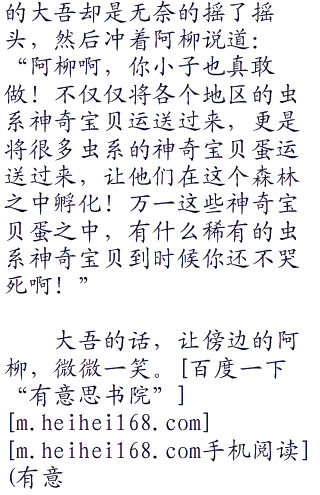 的大吾却是无奈的摇了摇
头，然后冲着阿柳说道：
“阿柳啊，你小子也真敢
做！不仅仅将各个地区的虫
系神奇宝贝运送过来，更是
将很多虫系的神奇宝贝蛋运
送过来，让他们在这个森林
之中孵化！万一这些神奇宝
贝蛋之中，有什么稀有的虫
系神奇宝贝到时候你还不哭
死啊！”
大吾的话，让傍边的阿
柳，微微一笑。[百度一下
“有意思书院”]
[m.heihei168.com]
[m.heihei168.com手机阅读]
(有意